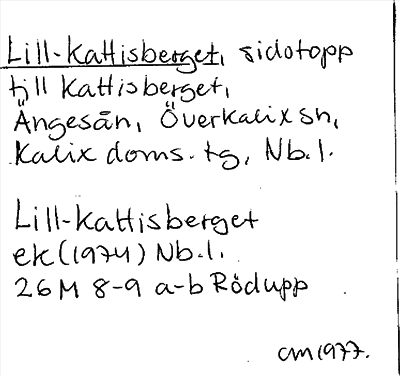 Lill-Kattisberget, sidotopp
till Kattisberget,
Ängesån, Överkalix sn,
Kalix doms. tg, Nb.l.
Lill-Kattisberget
ek (1974) Nb.l.
26M 8-9 a-b Rödupp
CM 1977.